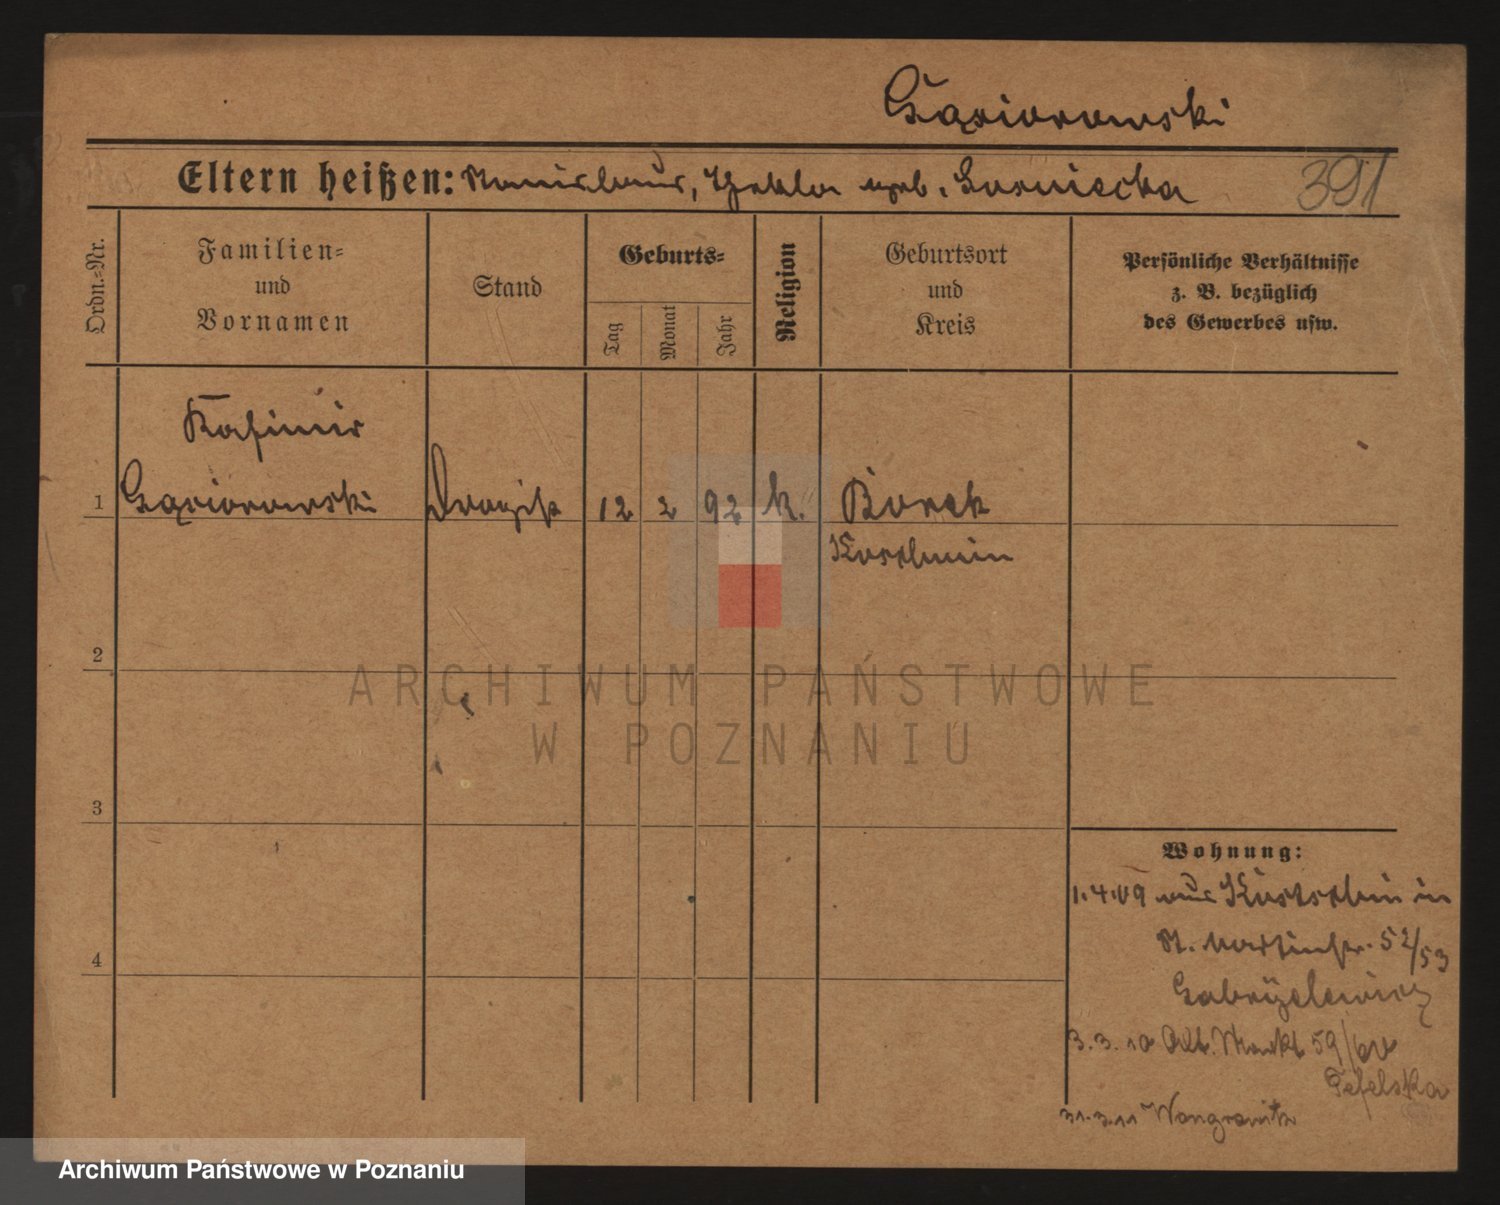 Gąsiorowski
Eltern heißen: Stanislaus, Thekla geb. Gosniecka
391
Ordn.-Nr.
Familien-
und
Vornamen
Stand
Geburts-
Tag
Monat
Jahr
Religion
Geburtsort
und
Kreis
Persönliche Verhältnisse
z. B. bezüglich
des Gewerbes usw.
Kasimir
1 Gąsiorowski Drogist 12 2 92 k. Borek
Koschmin
2
3
4
Wohnung:
1.4.09 aus Koschmin in
St. Martinstr. 52/53
Gabryelewicz
3.3.10 Alt. Markt 59/60
31.3.11 Wongrowitz
ARCHIWUM PAŃSTWOWE
W POZNANIU
Archiwum Państwowe w Poznaniu